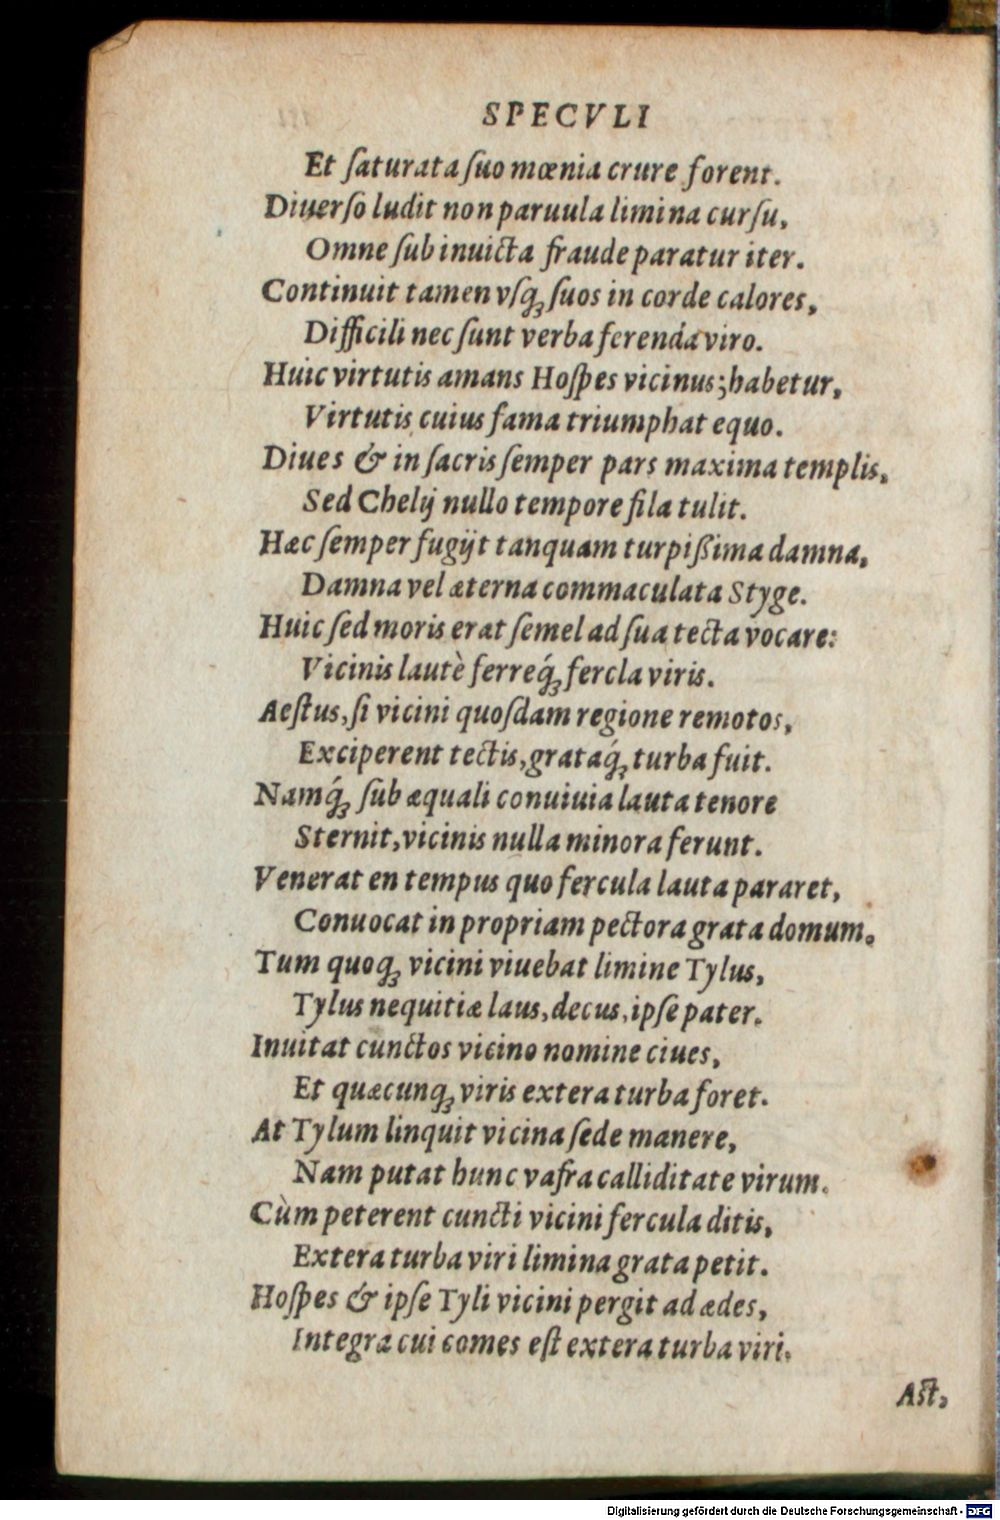 SPECVLI
Et ſaturata ſuo mœnia crure forent.
Diuerſo ludit non paruula limina curſu,
Omne ſub inuicta fraude paratur iter.
Continuit tamen vſq; ſuos in corde calores,
Difficili nec ſunt verba ferenda viro.
Huic virtutis amans Hoſpes vicinus; habetur,
Virtutis cuius fama triumphat equo.
Diues & in ſacris ſemper pars maxima templis,
Sed Chelij nullo tempore fila tulit.
Hæc ſemper fugijt tanquam turpißima damna,
Damna vel æterna commaculata Styge.
Huic ſed moris erat ſemel ad ſua tecta vocare:
Vicinis lautè ferreq́; fercla viris.
Aeſtus, ſi vicini quoſdam regione remotos,
Exciperent tectis, grataq́; turba fuit.
Namq́; ſub æquali conuiuia lauta tenore
Sternit, vicinis nulla minora ferunt.
Venerat en tempus quo fercula lauta pararet,
Conuocat in propriam pectora grata domum.
Tum quoq; vicini viuebat limine Tylus,
Tylus nequitiæ laus, decus, ipſe pater.
Inuitat cunctos vicino nomine ciues,
Et quæcunq; viris extera turba foret.
At Tylum linquit vicina ſede manere,
Nam putat hunc vafra calliditate virum.
Cùm peterent cuncti vicini fercula ditis,
Extera turba viri limina grata petit.
Hoſpes & ipſe Tyli vicini pergit ad ædes,
Integra cui comes eſt extera turba viri.
Aſt,
Digitalisierung gefördert durch die Deutsche Forschungsgemeinschaft - DFG